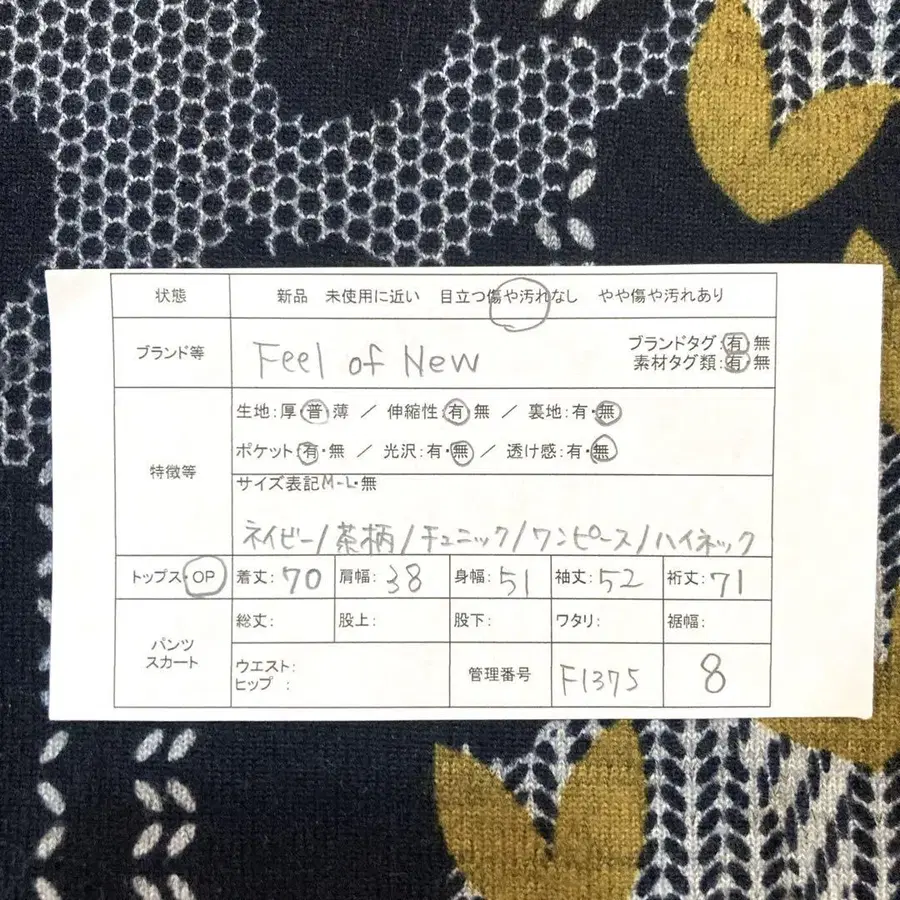 状態 新品 未使用に近い 目立つ傷や汚れなし やや傷や汚れあり
ブランド等 Feel of New ブランドタグ:有・無
素材タグ類:有・無
特徴等 生地:厚・普・薄 / 伸縮性:有・無 / 裏地:有・無
ポケット:有・無 / 光沢:有・無 / 透け感:有・無
サイズ表記M-L・無
ネイビー/茶柄/チュニック/ワンピース/ハイネック
トップス・OP 着丈:70 肩幅:38 身幅:51 袖丈:52 裄丈:71
パンツ スカート 総丈: 股上: 股下: ワタリ: 裾幅:
ウエスト:
ヒップ : 管理番号 F1375 8